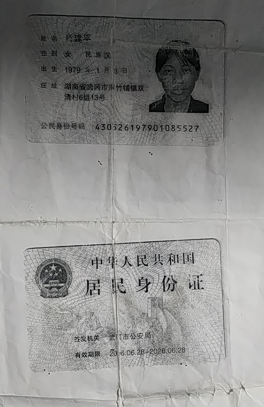 姓名
性别 女 民族 汉
出生 1979 年 1 月 日
住址 湖南省武冈市 镇双
清村6组13号
公民身份号码 430526197901085527
中华人民共和国
居民身份证
签发机关 武冈市公安局
有效期限 6.06.28-2026.06.28